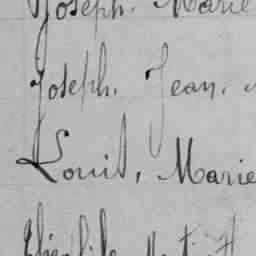 Joseph. Marie
Joseph. Jean.
Louis, Marie